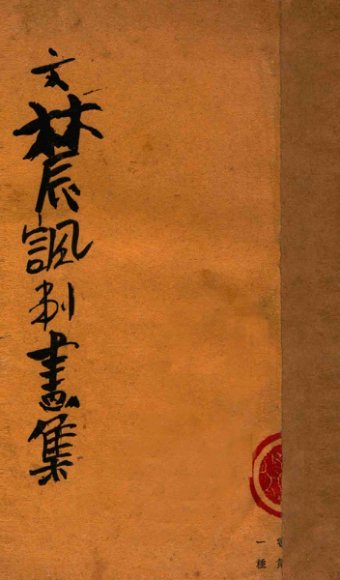 文林辰諷刺畫集
一種